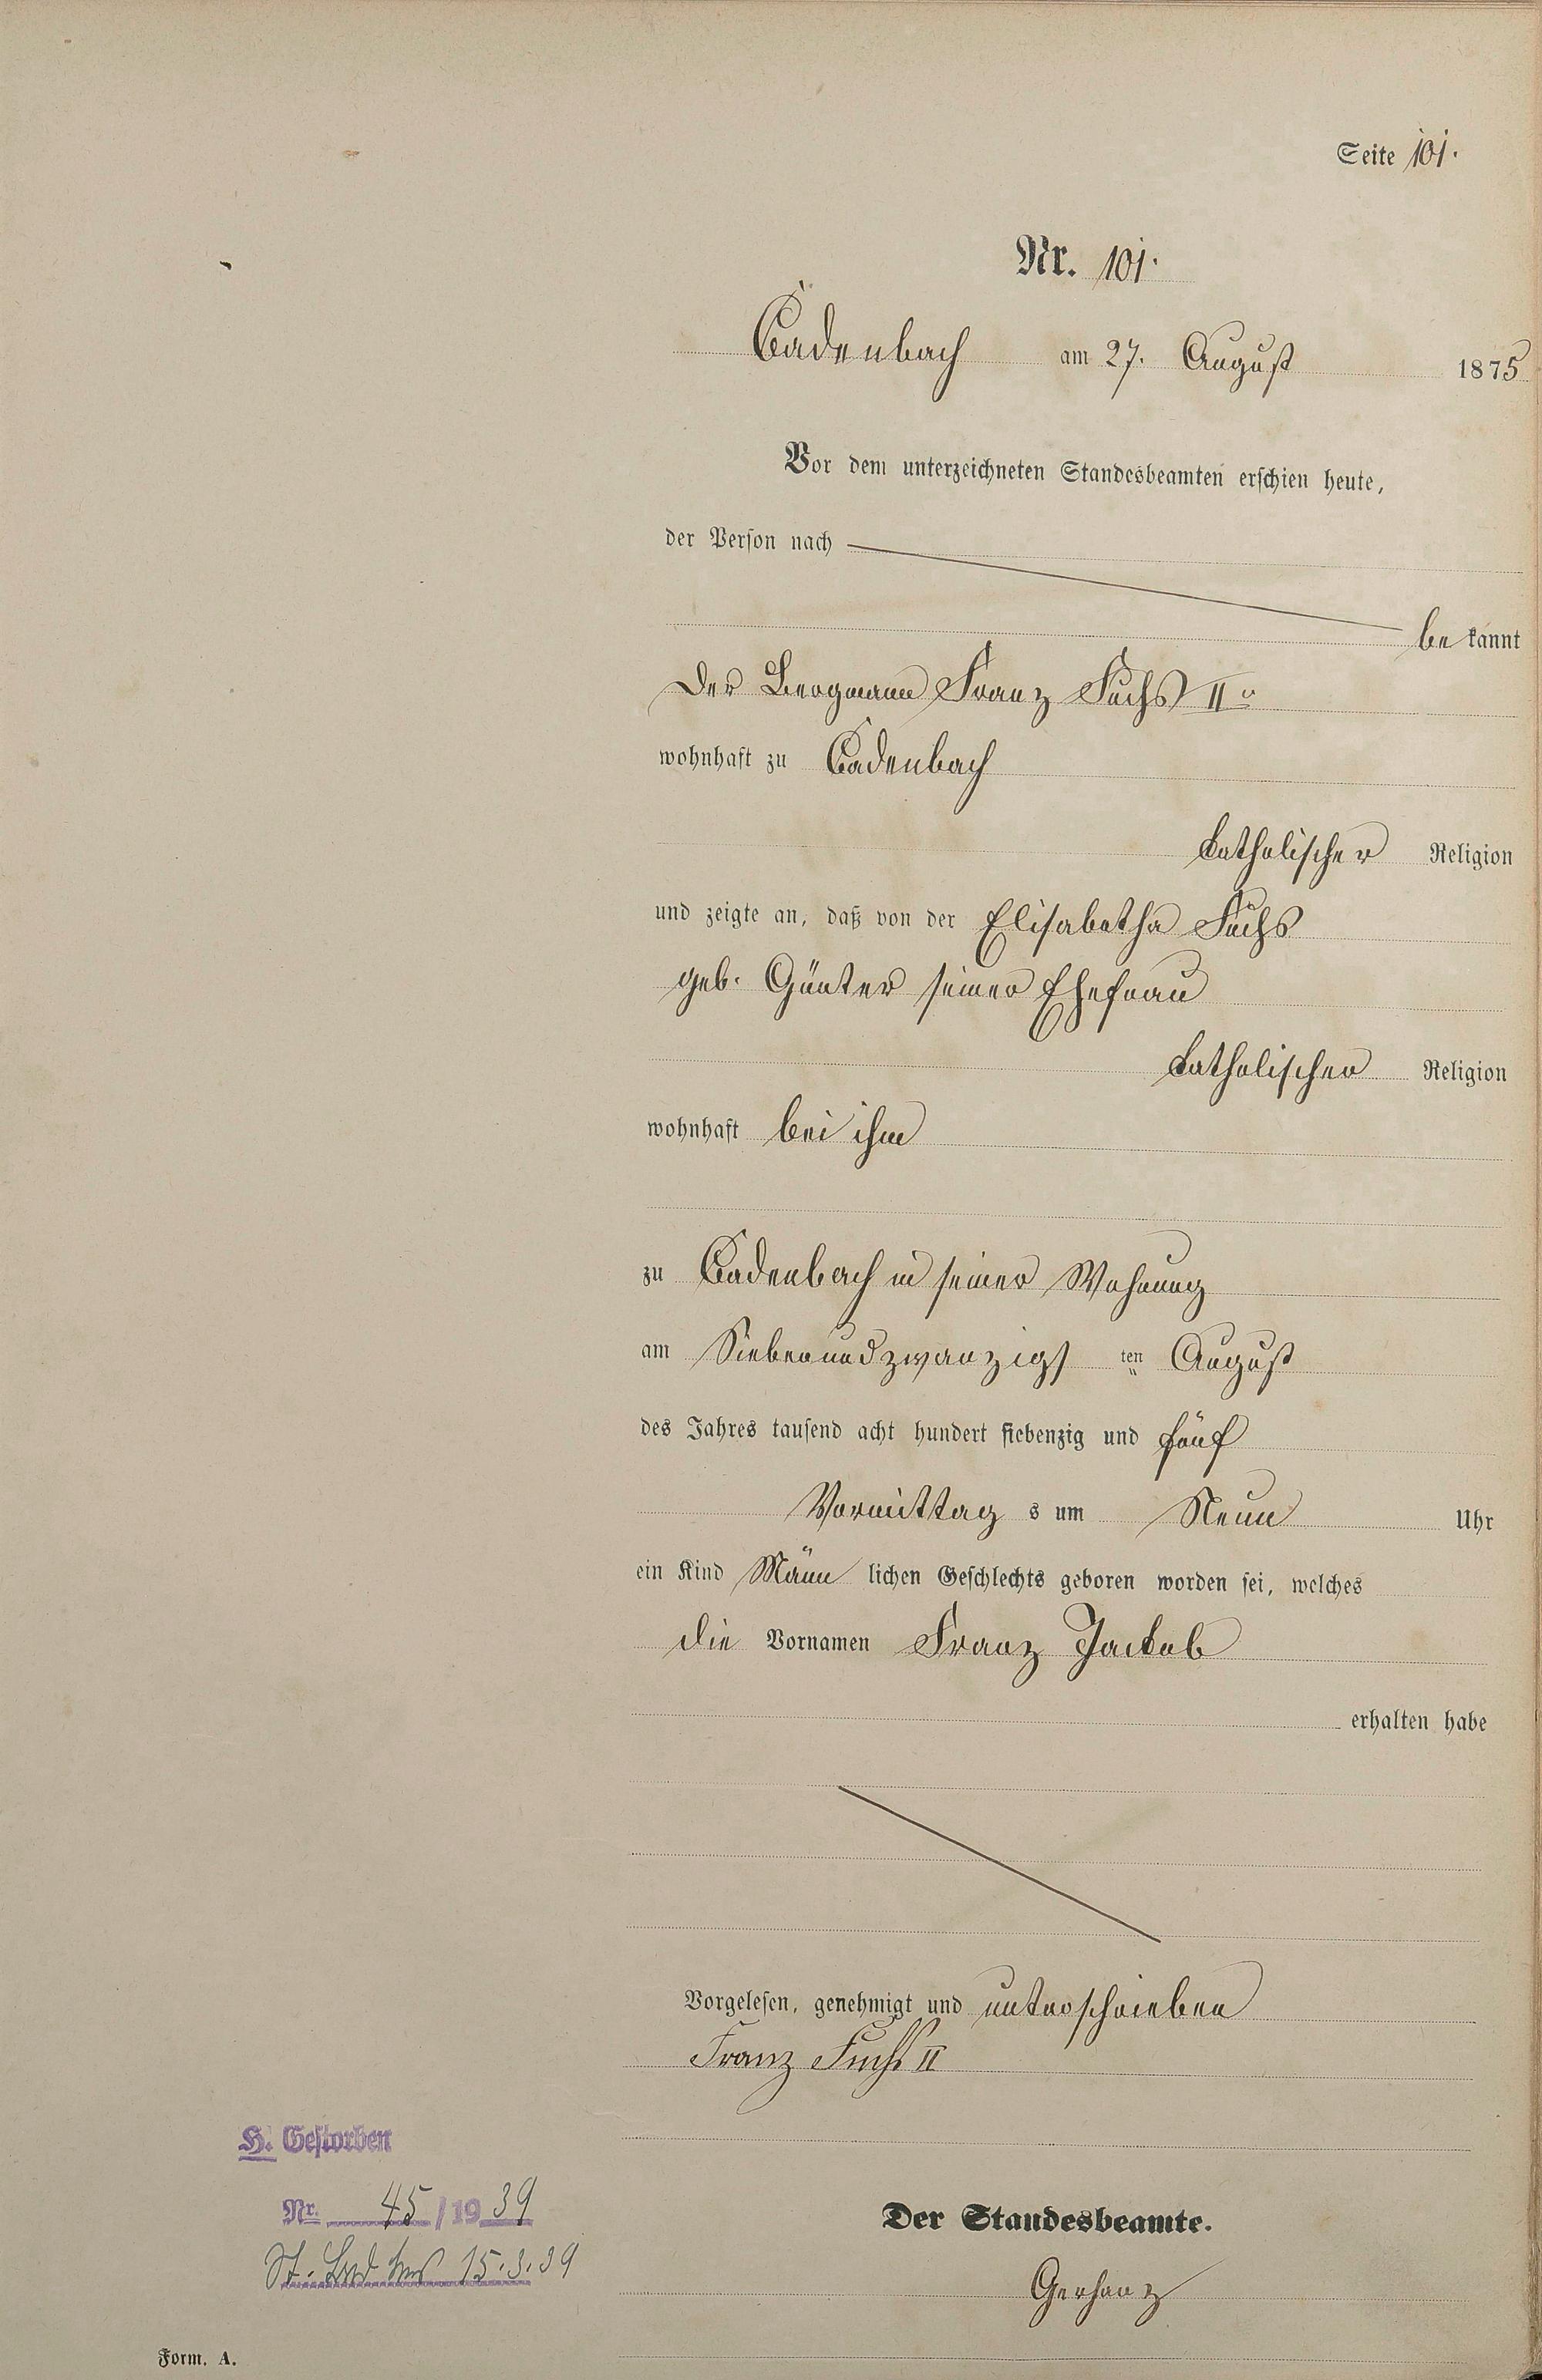 Seite 101.
Nr. 101.
Cadenbach am 27. August 1875
Vor dem unterzeichneten Standesbeamten erschien heute,
der Person nach
be kannt
der Bergmann Franz Fuchs II
wohnhaft zu Cadenbach
katholischer Religion
und zeigte an, daß von der Elisabetha Fuchs
geb. Günter seiner Ehefrau
katholischer Religion
wohnhaft bei ihm
zu Cadenbach in seiner Wohnung
am Siebenundzwanzigs ten August
des Jahres tausend acht hundert siebenzig und fünf
Vormittag s um Neun Uhr
ein Kind Männ lichen Geschlechts geboren worden sei, welches
die Vornamen Franz Jackob
erhalten habe
Vorgelesen, genehmigt und unterschrieben
Franz Fuchs II
H. Gestorben
Nr. 45/1939
St. 15.3.39
Der Standesbeamte.
Gerhanz
Form. A.